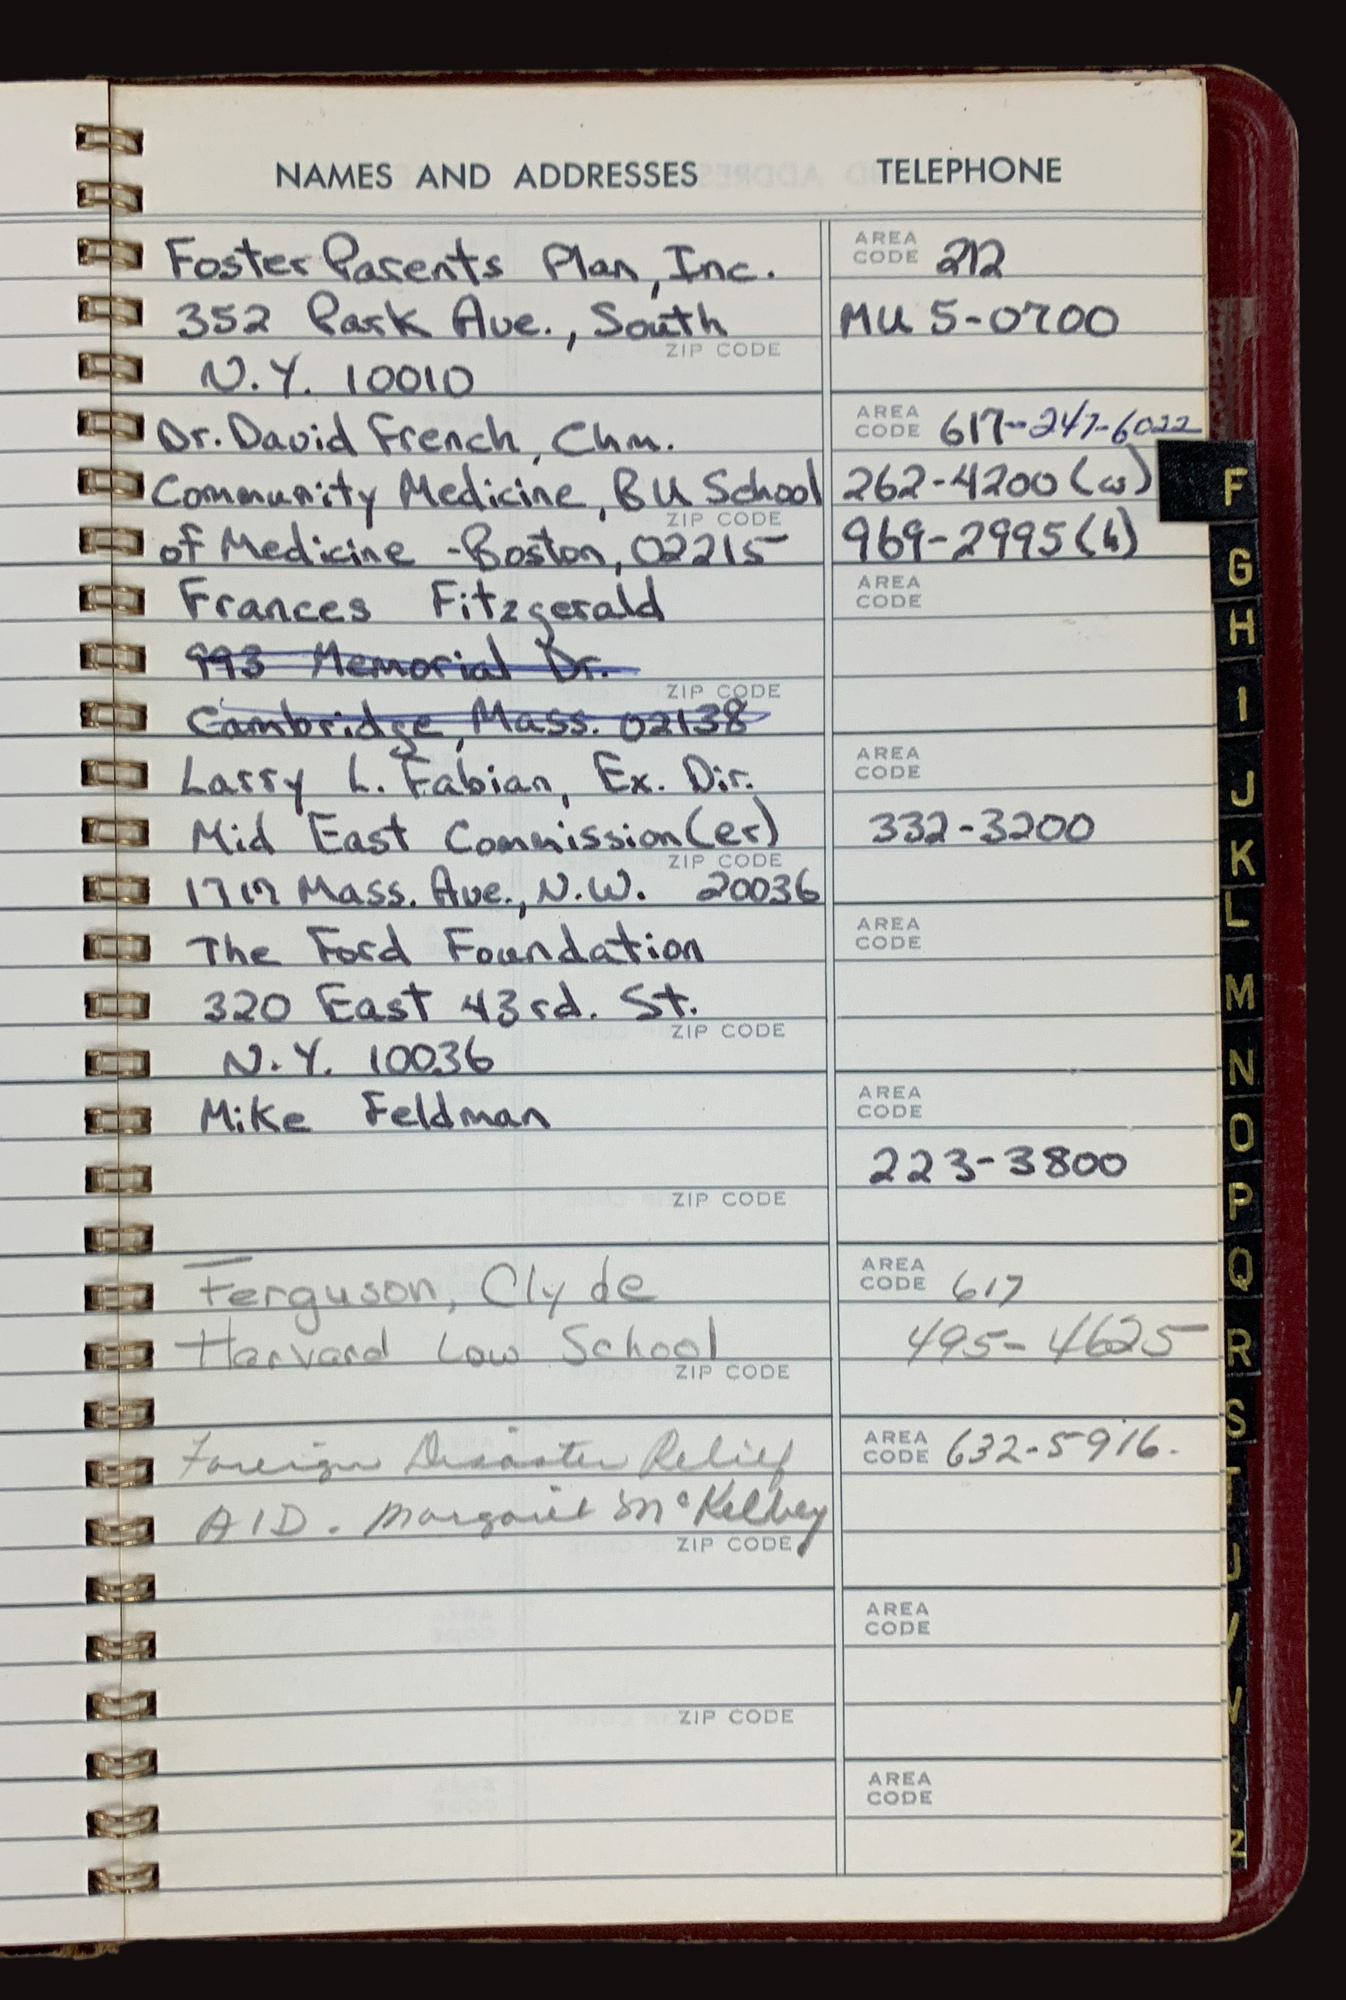 NAMES AND ADDRESSES TELEPHONE
Foster Parents Plan, Inc. AREA CODE 212
352 Park Ave., South MU 5-0700
ZIP CODE
N.Y. 10010
Dr. David French, Chm. AREA CODE 617-247-6022
Community Medicine, BU School 262-4200 (w)
ZIP CODE
of Medicine - Boston, 02215 969-2995 (h)
Frances Fitzgerald AREA CODE
993 Memorial Dr.
ZIP CODE
Cambridge, Mass. 02138
Larry L. Fabian, Ex. Dir. AREA CODE
Mid East Commission(er) 332-3200
ZIP CODE
1717 Mass. Ave., N.W. 20036
The Ford Foundation AREA CODE
320 East 43rd. St.
ZIP CODE
N.Y. 10036
Mike Feldman AREA CODE
223-3800
ZIP CODE
Ferguson, Clyde AREA CODE 617
Harvard Law School 495-4625
ZIP CODE
Foreign Disaster Relief AREA CODE 632-5916.
AID. Margaret McKelvey
ZIP CODE
AREA CODE
ZIP CODE
AREA CODE
F
G
H
I
J
K
L
M
N
O
P
Q
R
S
T
U
V
W
Z